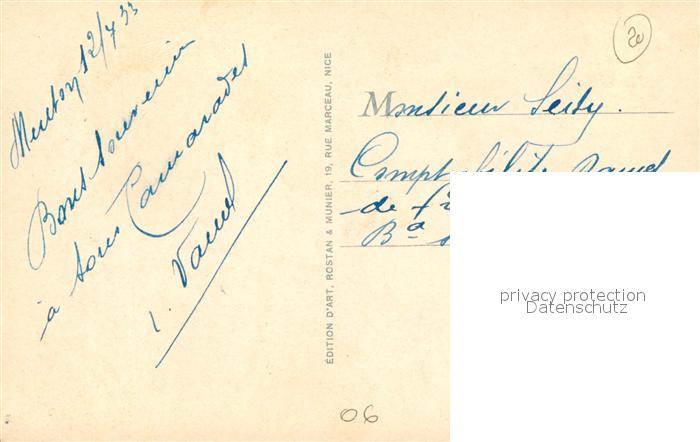 Menton 12/7 33
Bons Souvenir
à tous Camarades
ÉDITION D'ART, ROSTAN & MUNIER, 19, RUE MARCEAU, NICE
20
Monsieur
Comptabilité
de
Bd
privacy protection
Datenschutz
06